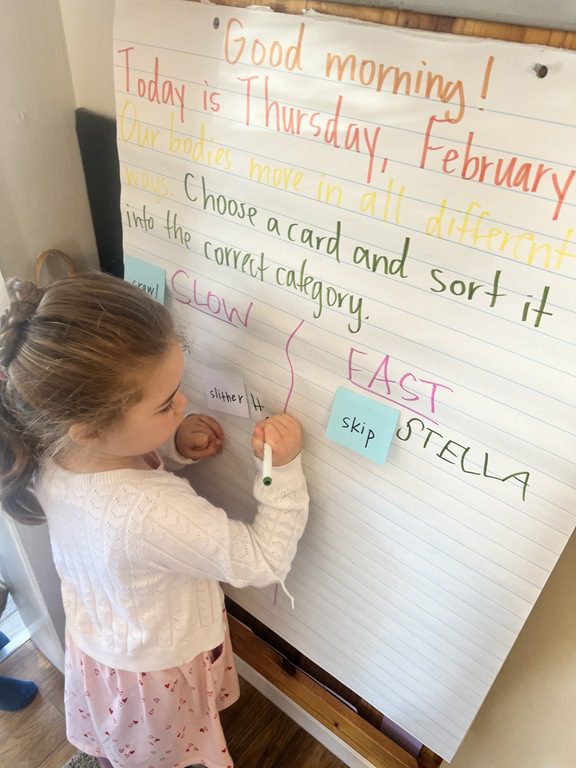 Good morning!
Today is Thursday, February
Our bodies move in all different
ways. Choose a card and sort it
into the correct category.
crawl SLOW
FAST
slither H
skip STELLA